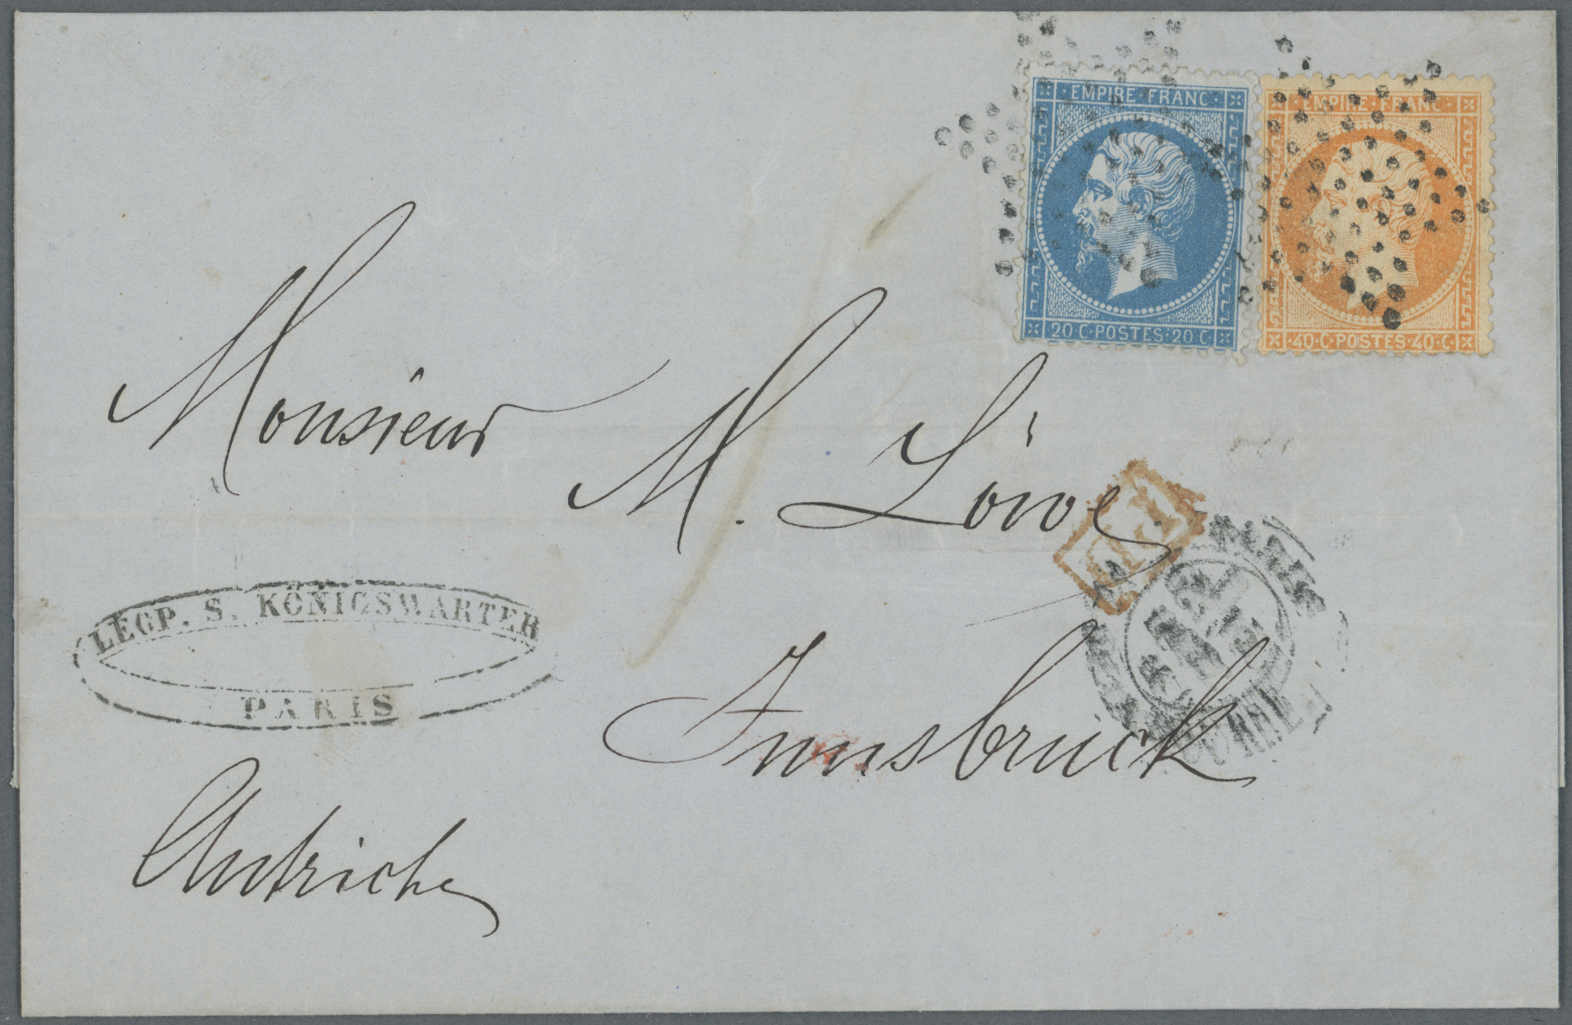 EMPIRE FRANC
20 C POSTES 20 C
EMPIRE FRANC
40 C POSTES 40 C
Monsieur M. Löwe
LEOP. S. KÖNIGSWARTER
PARIS
Innsbruck
Autriche